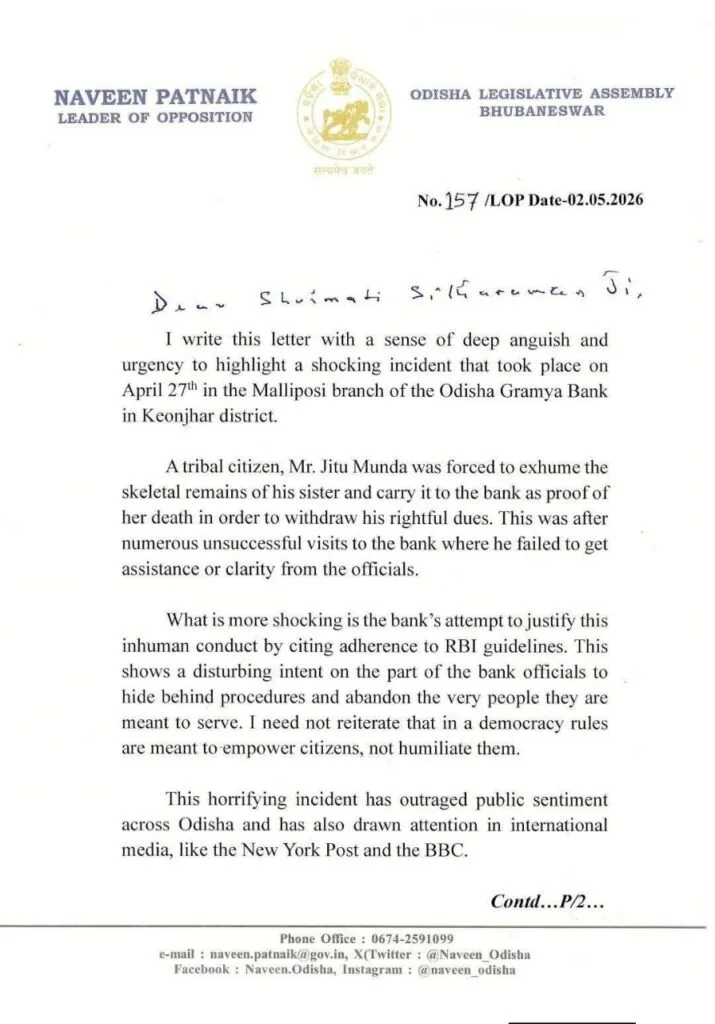 NAVEEN PATNAIK
LEADER OF OPPOSITION
सत्यमेव जयते
ODISHA LEGISLATIVE ASSEMBLY
BHUBANESWAR
No. 157 /LOP Date-02.05.2026
Dear Shrimati Sitharaman Ji,
I write this letter with a sense of deep anguish and
urgency to highlight a shocking incident that took place on
April 27th in the Malliposi branch of the Odisha Gramya Bank
in Keonjhar district.
A tribal citizen, Mr. Jitu Munda was forced to exhume the
skeletal remains of his sister and carry it to the bank as proof of
her death in order to withdraw his rightful dues. This was after
numerous unsuccessful visits to the bank where he failed to get
assistance or clarity from the officials.
What is more shocking is the bank's attempt to justify this
inhuman conduct by citing adherence to RBI guidelines. This
shows a disturbing intent on the part of the bank officials to
hide behind procedures and abandon the very people they are
meant to serve. I need not reiterate that in a democracy rules
are meant to empower citizens, not humiliate them.
This horrifying incident has outraged public sentiment
across Odisha and has also drawn attention in international
media, like the New York Post and the BBC.
Contd…P/2…
Phone Office : 0674-2591099
e-mail : naveen.patnaik@gov.in, X(Twitter : @Naveen_Odisha
Facebook : Naveen.Odisha, Instagram : @naveen_odisha